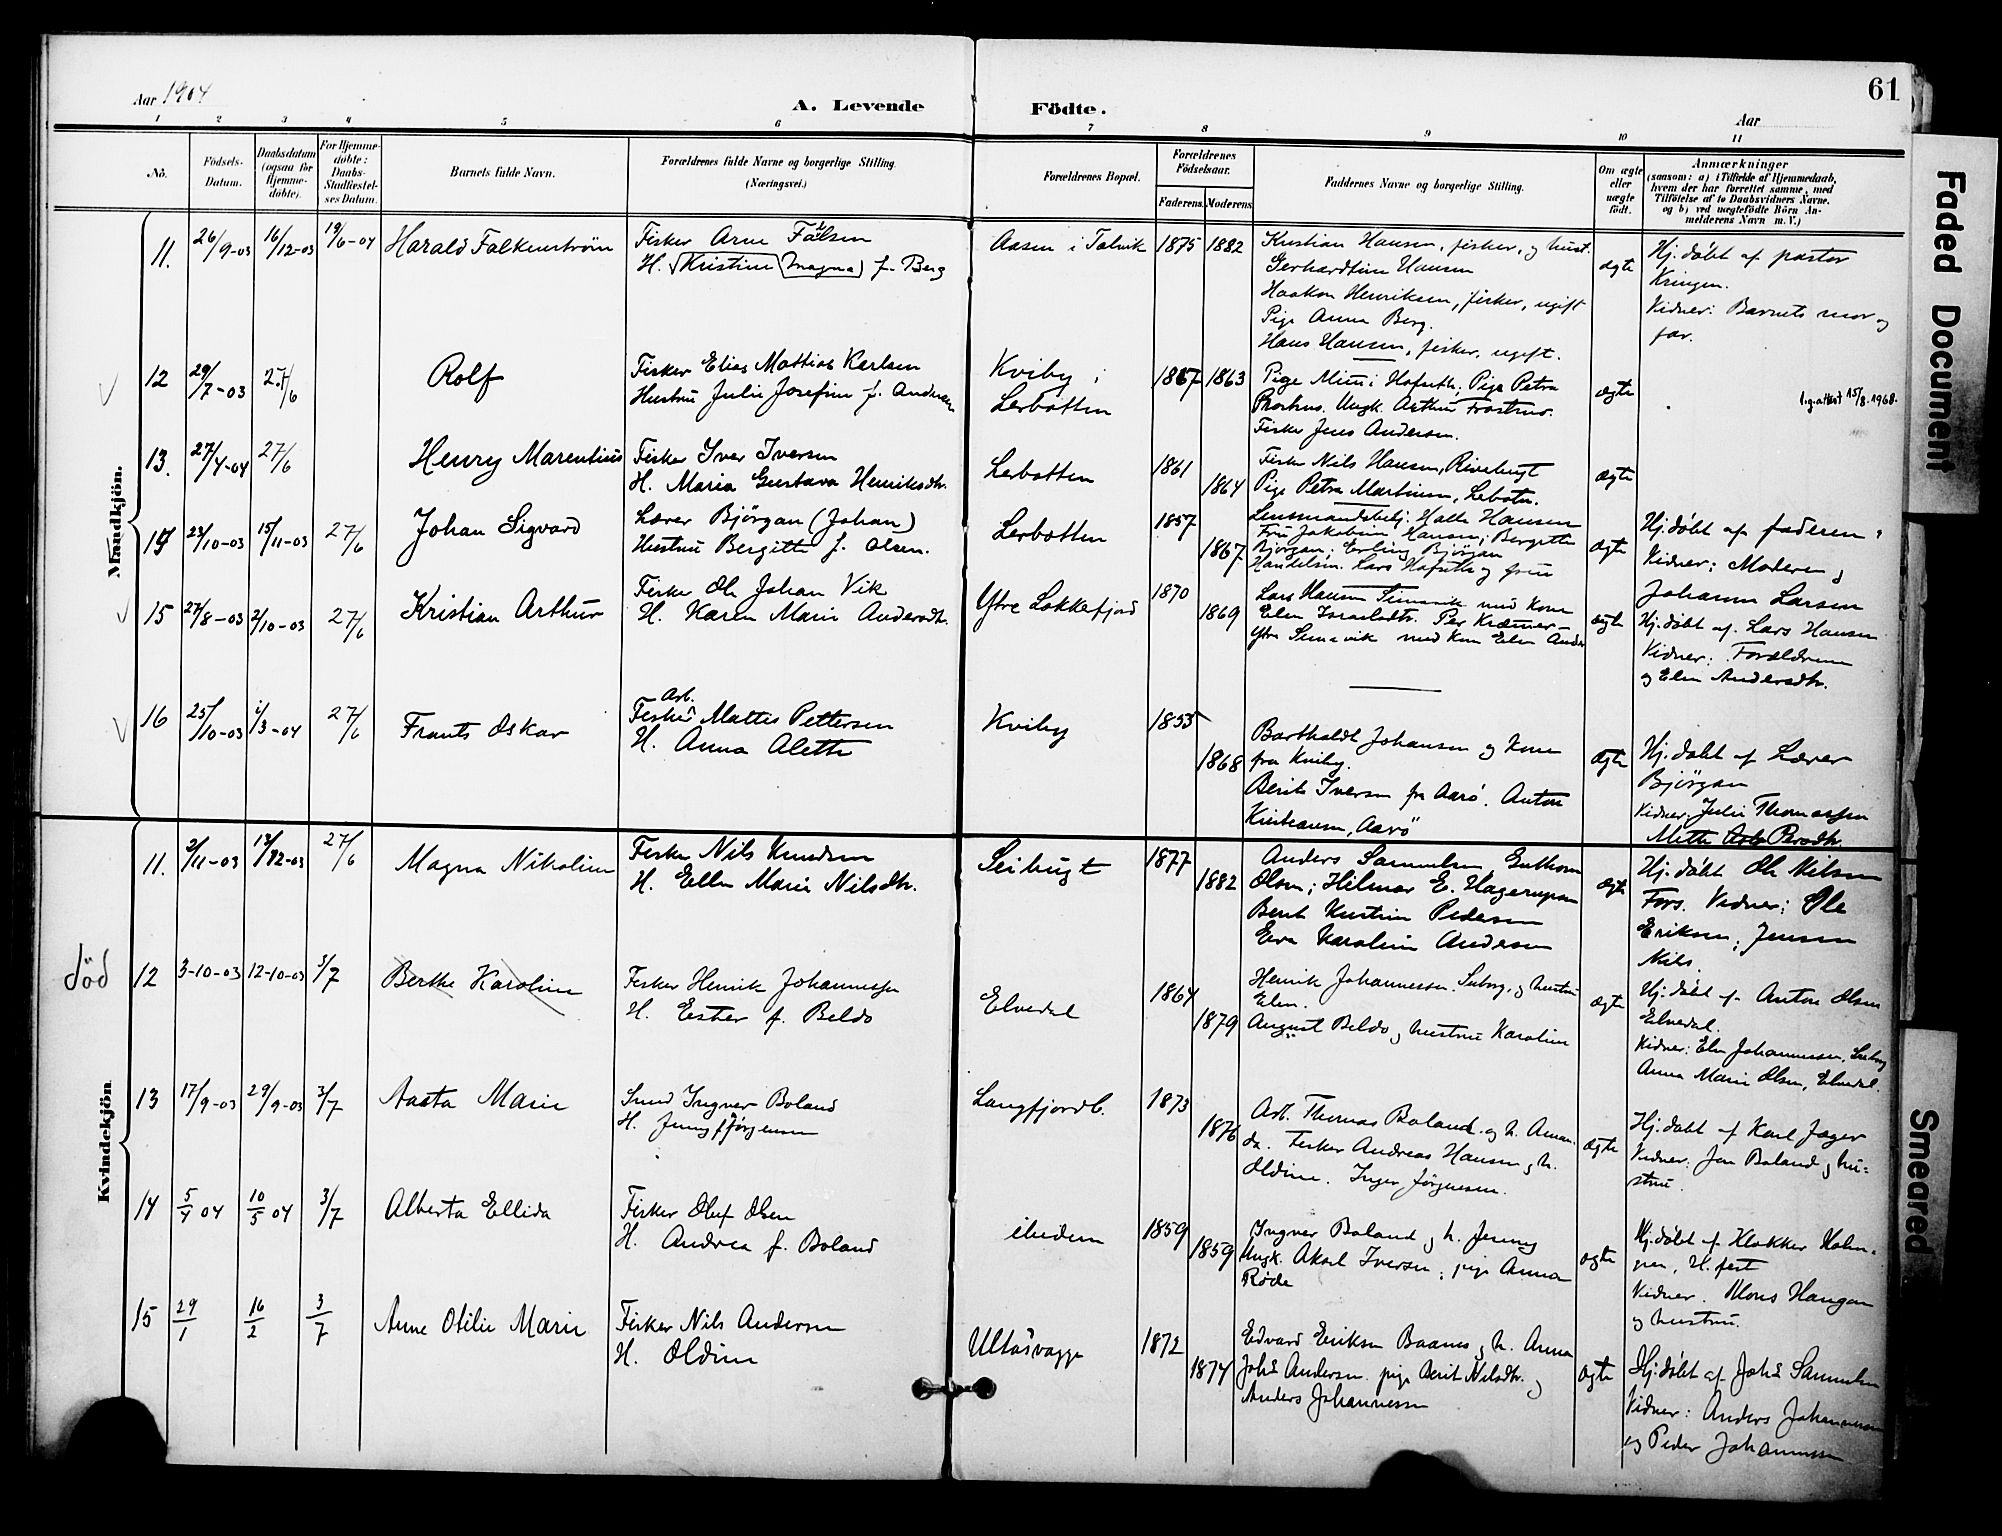 Aar 1904
A. Levende Födte.
Aar
61
1 2 3 4 5 6 7 8 9 10 11
No.
Födsels-Datum.
Daabsdatum (ogsaa for Hjemmedöbte).
For Hjemmedöbte: Daabs-Stadfæstelses Datum.
Barnets fulde Navn.
Forældrenes fulde Navne og borgerlige Stilling. (Næringsvei.)
Forældrenes Bopæl.
Forældrenes Födselsaar.
Faderens.
Moderens.
Faddernes Navne og borgerlige Stilling.
Om ægte eller uægte födt.
Anmærkninger
(saasom: a) i Tilfælde af Hjemmedaab, hvem der har forrettet samme, med Tilföielse af to Daabsvidners Navne, og b) ved uægtefödte Börn Anmelderens Navn m. V.)
Mandkjön.
11. 26/9-03 16/12-03 19/6-04 Harald Falkenstrøm
Fisker Arne Falsen
H. Kristine Magna f. Berg
Aasen i Talvik 1875 1882
Kristian Hansen, fisker, og hust.
Gerhardine Hansen
Haakon Henriksen, fisker, ugift
Pige Anna Berg.
Hans Hansen, fisker, ugift.
ægte
Hj. døbt af pastor
Kringen.
Vidner: Barnets mor og
far.
12 29/7-03 27/6 Rolf
Fisker Elias Mathias Karlsen
Hustru Julie Josefine f. Andersen
Kviby i
Lerbotten
1867 1863
Pige Mimi Hofseth; Pige Petra
Ungk. Arthur
Fisker Jens Andersen.
ægte
lig.attest 15/8.1968.
13. 27/4-04 27/6 Henry Marentius
Fisker Iver Iversen
H. Maria Gustava Henriksdtr.
Lerbotten 1861 1864
Fisker Nils Hansen, Rivebugt
Pige Petra Martinsen, Lebotn.
ægte
14 23/10-03 15/11-03 27/6 Johan Sigvard
Lærer Bjørgan (Johan)
Hustru Bergitte f. Olsen.
Lerbotten 1857 1867
Lensmandsbetj. Halle Hansen
Fru Jakobine Hansen; Bergitte
Bjørgan; Erling Bjørgan
Handelsm. Lars Hofseth og frue
ægte
Hj. døbt af faderen
Vidner: Moderen og
Johanne Larsen
15 27/8-03 2/10-03 27/6 Kristian Arthur
Fisker Ole Johan Vik
H. Karen Marie Andersdtr.
Ytre Lokkefjord 1870 1869
Lars Hansen Simavik med kone
Elen Israelsdtr. Per Kræmer
Ytre Simavik med kone Elen Ander
ægte
Hj. døbt af. Lars Hansen
Vidner: Forældrene
og Elen Andersdtr.
16 25/10-03 1/3-04 27/6 Frants Oskar
Arb.
Fisker Mattis Pettersen
H. Anna Alette
Kviby 1855 1868
Barthold Johansen og kone
fra Kviby.
Berit Iversen fra Aarö. Anton
Kristiansen, Aarö
ægte
Hj. døbt af Lærer
Bjørgan
Vidner. Julie Thomassen
Mette
Kvindekjön.
11. 2/11-03 13/12-03 27/6 Magna Nikoline
Fisker Nils Knudsen
H. Ellen Marie Nilsdtr.
Seibugt 1877 1882
Anders Samuelsen
Olsen; Hilmar E. Hagerupsen
Berit Kristine Pedersen
Eva Karoline Andersen
ægte
Hj. døbt Ole Nilsen
Fors. Vidner: Ole
Eriksen; Jensen
Nils.
død
12 3-10-03 12-10-03 3/7 Berthe Karoline
Fisker Henrik Johannessen
H. Ester f. Beldo
Elvedal 1864 1879
Henrik Johannessen. og hustru
Elen.
August Beldo og hustru Karoline
ægte
Hj. døbt af Anton Olsen
Elvedal.
Vidner: Elen Johannessen,
Anna Marie Olsen, Elvedal.
13 17/9-03 29/9-03 3/7 Aasta Marie
Smed Ingver Boland
H. Jenny f. Jørgensen
Langfjordb. 1873 1876
Arb. Thomas Boland og h. Aman-
da. Fisker Andreas Hansen og h.
Oldine. Inger Jørgensen.
ægte
Hj. døbt af Karl Jæger
Vidner: Jens Boland og hu-
stru.
14 5/4 04 10/5 04 3/7 Alberta Ellida
Fisker Oluf Olsen
H. Andrea f. Boland
ibidem 1859 1859
Ingver Boland og h. Jenny
Ungk. Aksel Iversen; pige Anna
Røde
ægte
Hj. døbt af Klokker Holm-
gren, H.fest
Vidner. Mons Haugan
og hustru.
15 29/1 16/2 3/7 Anne Otilie Marie
Fisker Nils Andersen
H. Oldine
Ultasvagge 1872 1874
Edvard Eriksen og h. Anna
Johs Andersen pige Berit Nilsdtr. og
Anders Johannessen
ægte
Hj. døbt af Johs Samuelsen
Vidner: Anders Johannessen
og Peder Johannessen
Faded Document
Smeared